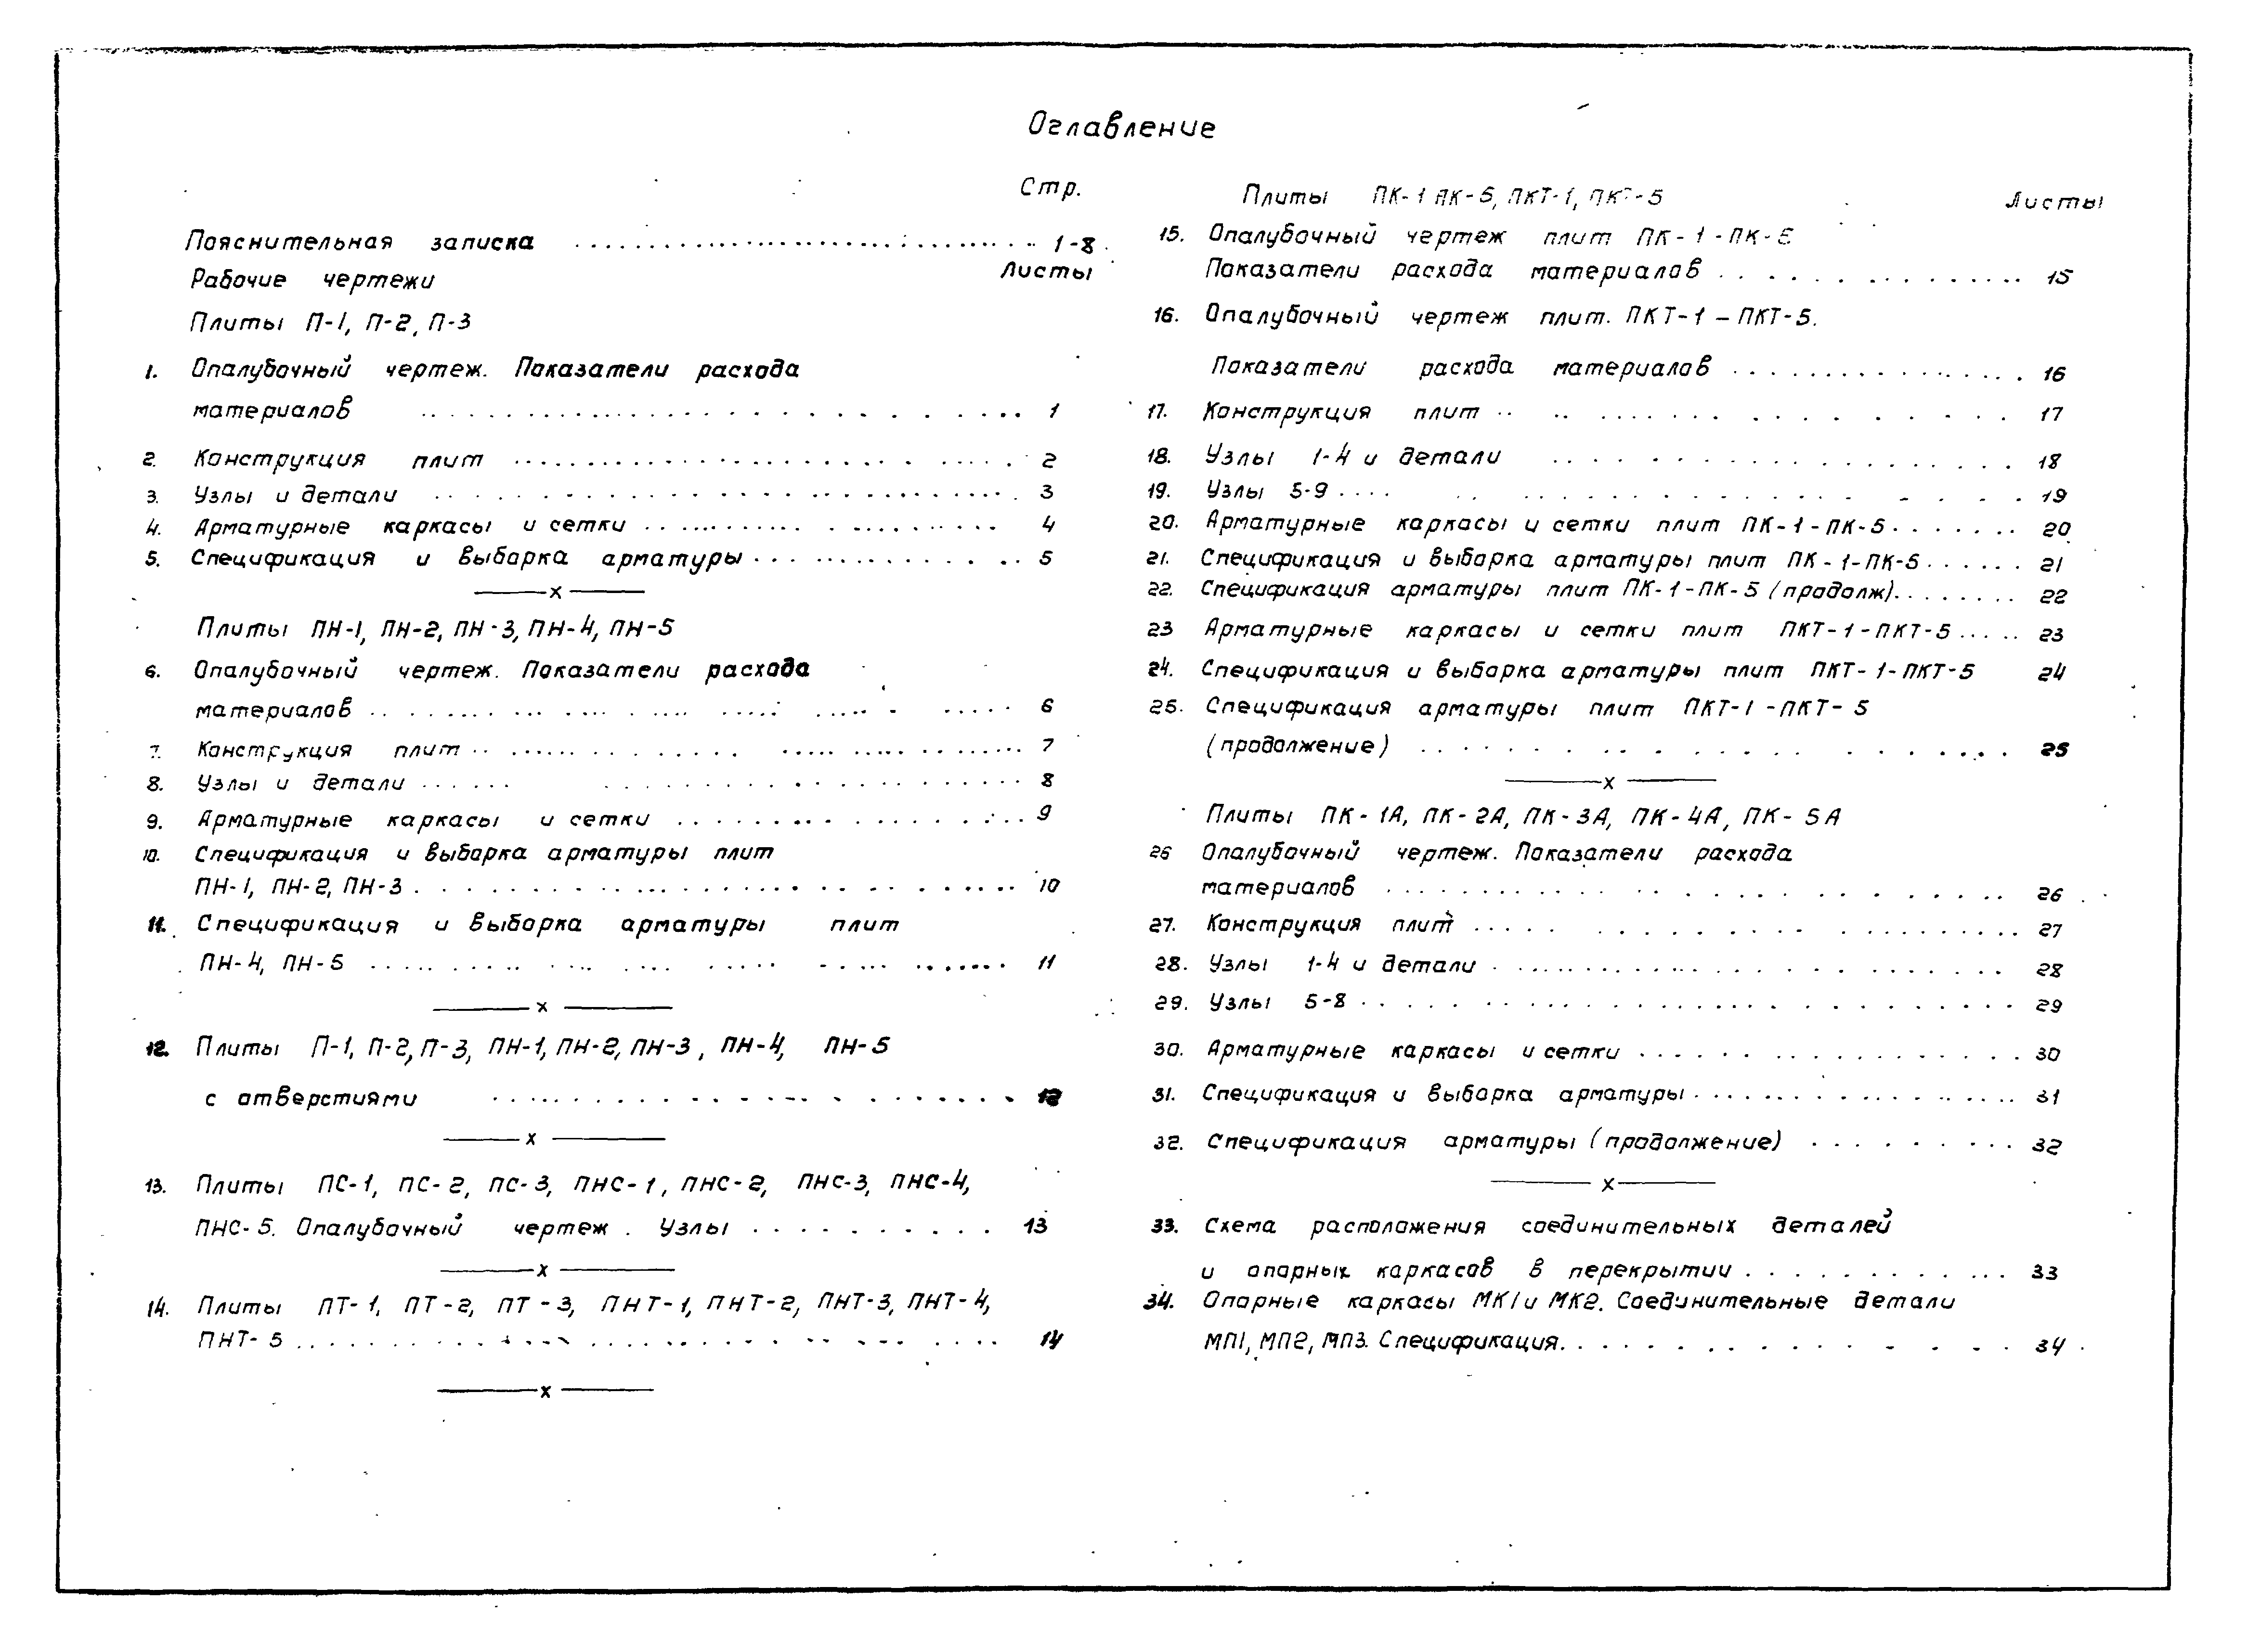 Оглавление
Стр.
Пояснительная записка ........ 1-8
Рабочие чертежи Листы
Плиты П-1, П-2, П-3
1. Опалубочный чертеж. Показатели расхода
материалов ........ 1
2. Конструкция плит ........ 2
3. Узлы и детали ........ 3
4. Арматурные каркасы и сетки ........ 4
5. Спецификация и выборка арматуры ........ 5
х
Плиты ПН-1, ПН-2, ПН-3, ПН-4, ПН-5
6. Опалубочный чертеж. Показатели расхода
материалов ........ 6
7. Конструкция плит ........ 7
8. Узлы и детали ........ 8
9. Арматурные каркасы и сетки ........ 9
10. Спецификация и выборка арматуры плит
ПН-1, ПН-2, ПН-3 ........ 10
11. Спецификация и выборка арматуры плит
ПН-4, ПН-5 ........ 11
х
12. Плиты П-1, П-2, П-3, ПН-1, ПН-2, ПН-3, ПН-4, ПН-5
с отверстиями ........ 12
х
13. Плиты ПС-1, ПС-2, ПС-3, ПНС-1, ПНС-2, ПНС-3, ПНС-4,
ПНС-5. Опалубочный чертеж. Узлы ........ 13
х
14. Плиты ПТ-1, ПТ-2, ПТ-3, ПНТ-1, ПНТ-2, ПНТ-3, ПНТ-4,
ПНТ-5 ........ 14
х
Плиты ПК-1 ПК-5, ПКТ-1, ПКТ-5 Листы
15. Опалубочный чертеж плит ПК-1-ПК-5
Показатели расхода материалов ........ 15
16. Опалубочный чертеж плит. ПКТ-1 – ПКТ-5.
Показатели расхода материалов ........ 16
17. Конструкция плит ........ 17
18. Узлы 1-4 и детали ........ 18
19. Узлы 5-9 ........ 19
20. Арматурные каркасы и сетки плит ПК-1-ПК-5 ........ 20
21. Спецификация и выборка арматуры плит ПК-1-ПК-5 ........ 21
22. Спецификация арматуры плит ПК-1-ПК-5 (продолж) ........ 22
23 Арматурные каркасы и сетки плит ПКТ-1-ПКТ-5 ........ 23
24. Спецификация и выборка арматуры плит ПКТ-1-ПКТ-5 24
25. Спецификация арматуры плит ПКТ-1-ПКТ-5
(продолжение) ........ 25
х
Плиты ПК-1А, ПК-2А, ПК-3А, ПК-4А, ПК-5А
26 Опалубочный чертеж. Показатели расхода
материалов ........ 26
27. Конструкция плит ........ 27
28. Узлы 1-4 и детали ........ 28
29. Узлы 5-8 ........ 29
30. Арматурные каркасы и сетки ........ 30
31. Спецификация и выборка арматуры ........ 31
32. Спецификация арматуры (продолжение) ........ 32
х
33. Схема расположения соединительных деталей
и опорных каркасов в перекрытии ........ 33
34. Опорные каркасы МК1 и МК2. Соединительные детали
МП1, МП2, МП3. Спецификация ........ 34